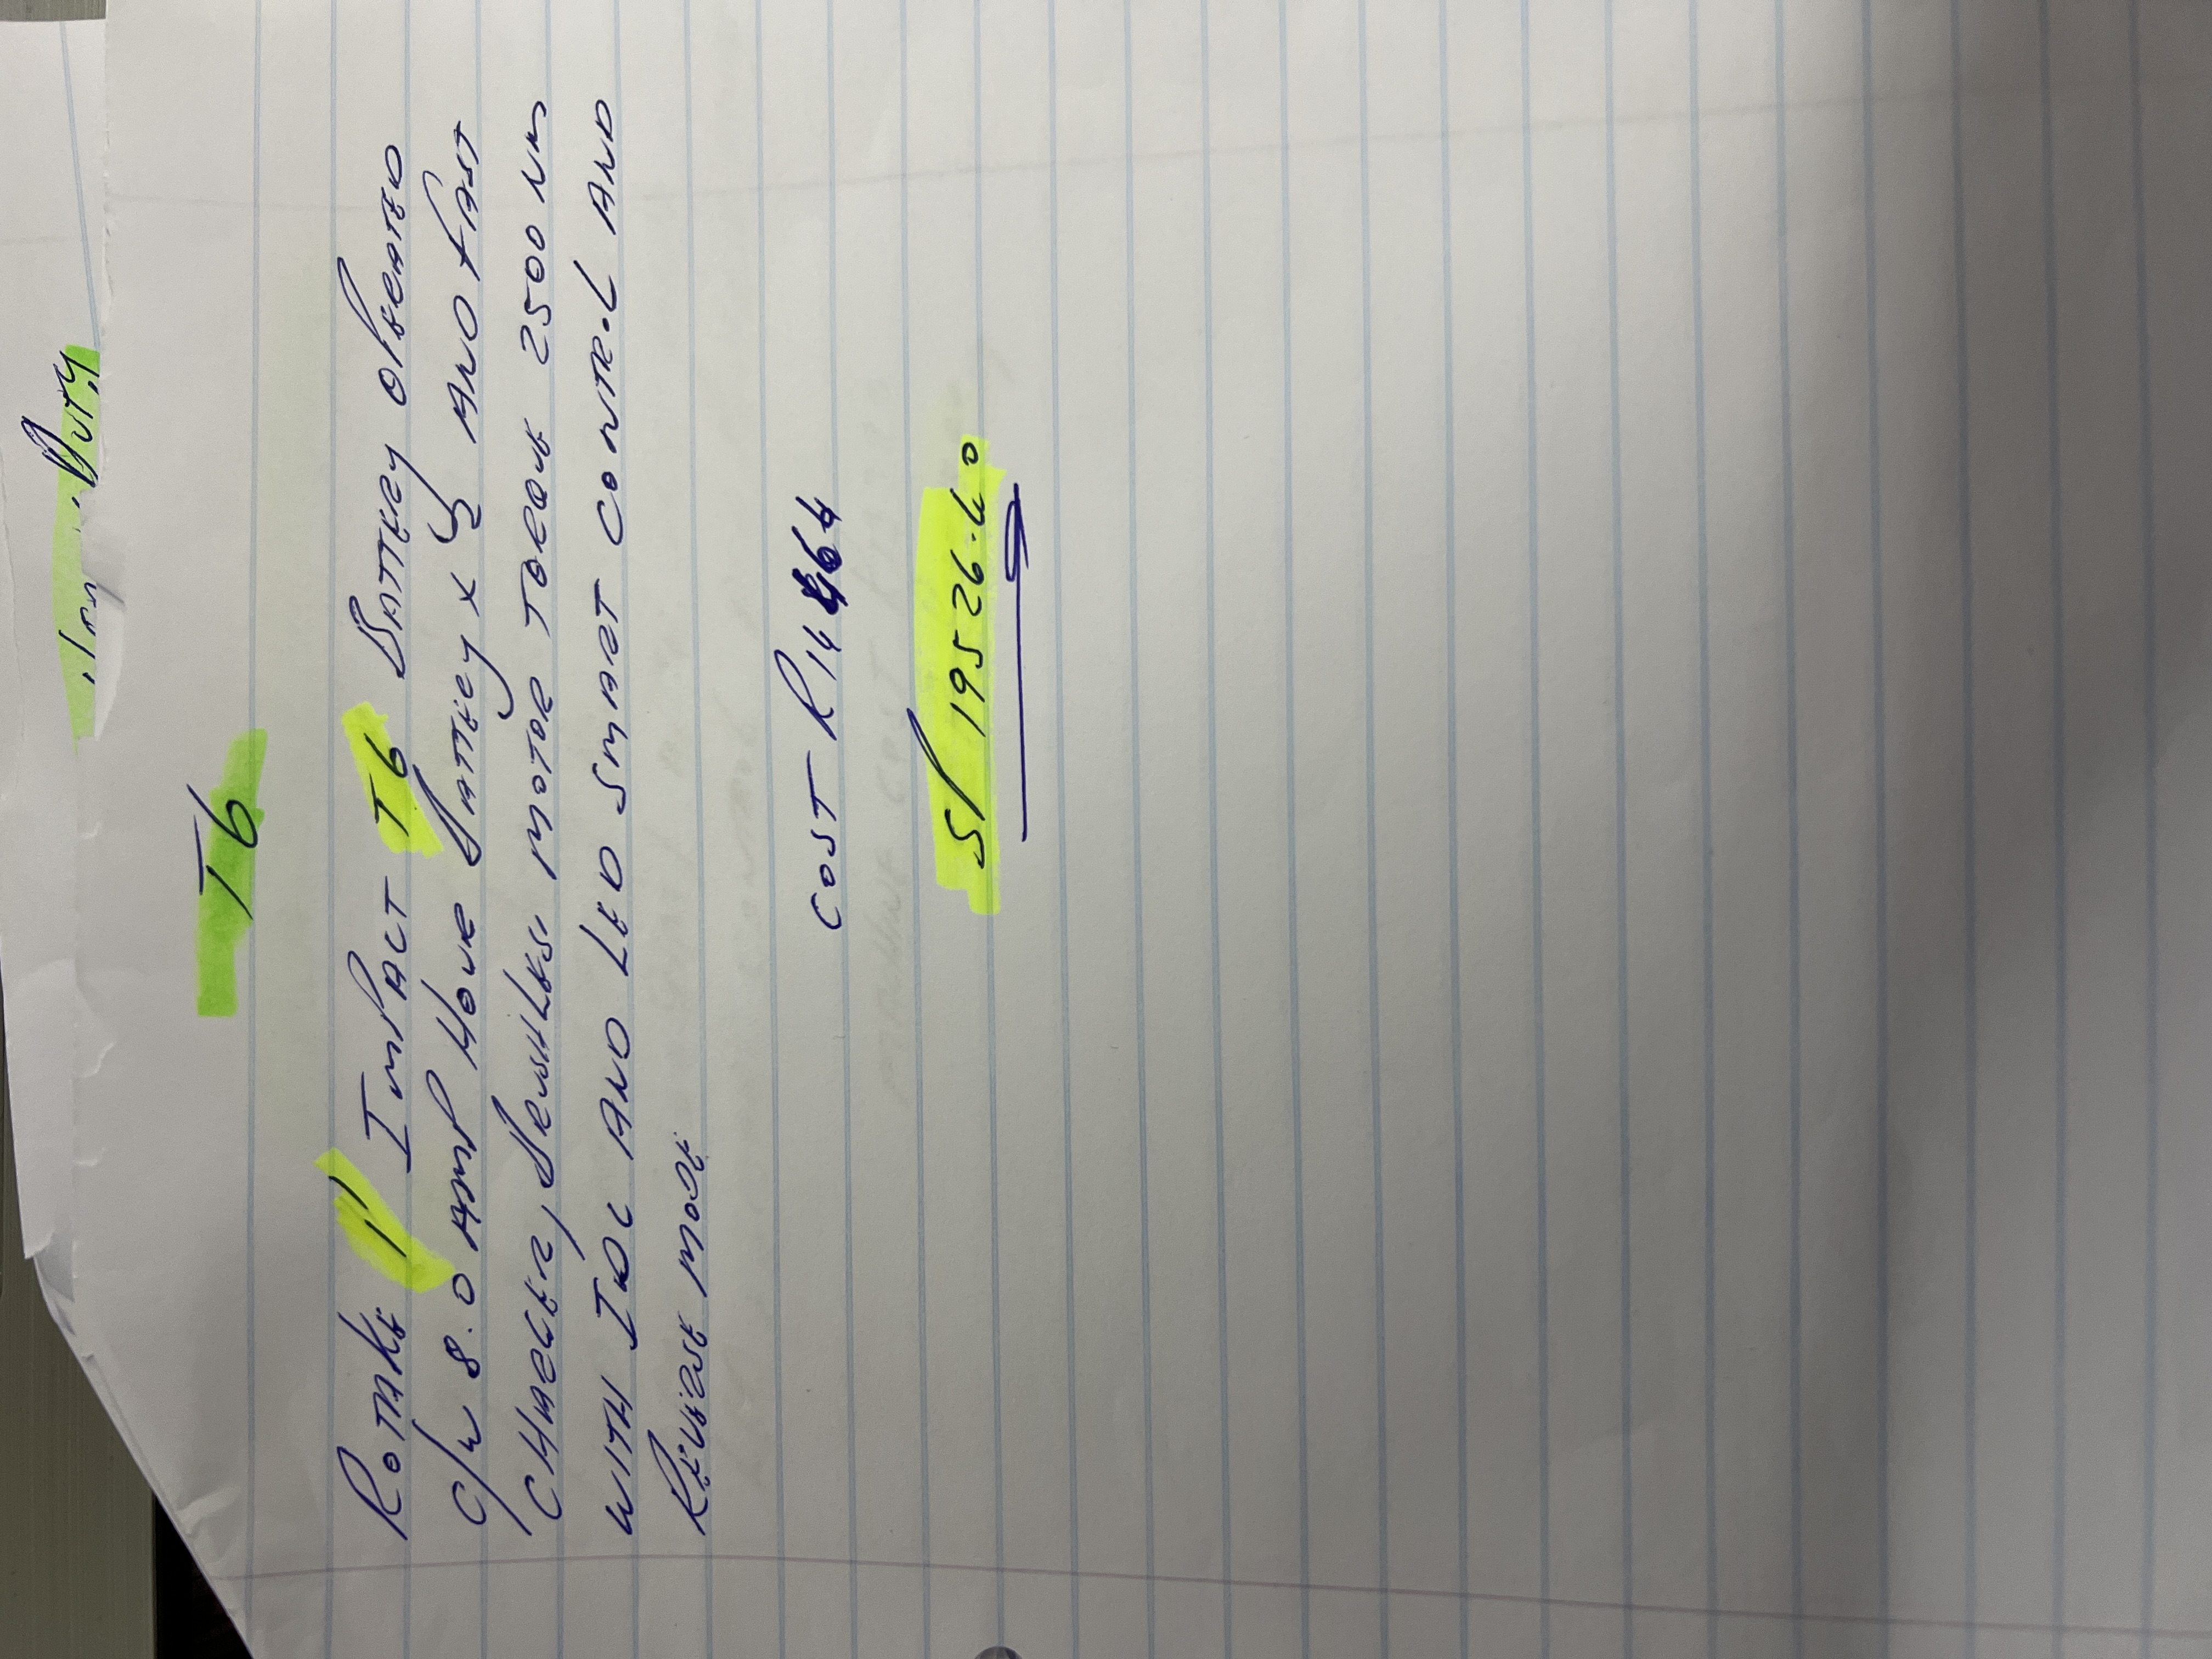 Duty
T6
ROTAKE 1" IMPACT T6 BATTERY OPERATED
C/W 8.0 AMP HOUR BATTERY x 2 AND FAST
CHARGER, BRUSHLESS MOTOR TORQUE 2500 NM
WITH IQC AND LED SMART CONTROL AND
REVERSE MODE
COST R14464
SP 19526.40